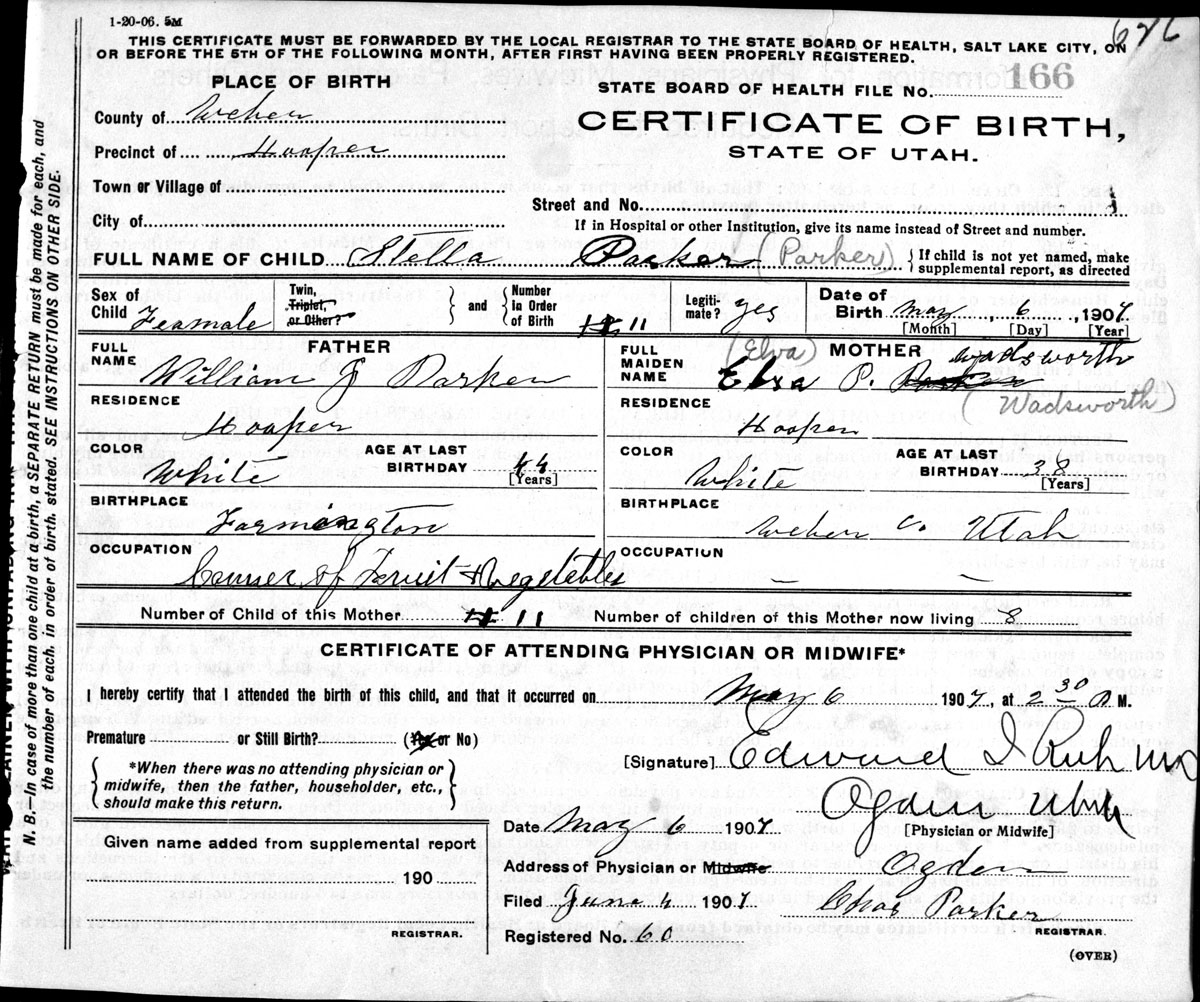 1-20-06. 5M
676
THIS CERTIFICATE MUST BE FORWARDED BY THE LOCAL REGISTRAR TO THE STATE BOARD OF HEALTH, SALT LAKE CITY, ON
OR BEFORE THE 5TH OF THE FOLLOWING MONTH, AFTER FIRST HAVING BEEN PROPERLY REGISTERED.
PLACE OF BIRTH
STATE BOARD OF HEALTH FILE No. 166
County of Weber
CERTIFICATE OF BIRTH,
Precinct of Hooper
STATE OF UTAH.
Town or Village of
Street and No.
City of
If in Hospital or other Institution, give its name instead of Street and number.
FULL NAME OF CHILD Stella Parker (Parker) {If child is not yet named, make
supplemental report, as directed
Sex of Child Feamale
Twin, Triplet, or Other?
and
Number in Order of Birth 11
Legiti-mate? yes
Date of Birth May 6, 1907
[Month] [Day] [Year]
FATHER
FULL NAME William J Parker
MOTHER
FULL MAIDEN NAME (Elva) Elva P. Parker Wadsworth
(Wadsworth)
RESIDENCE Hooper
RESIDENCE Hooper
COLOR White
AGE AT LAST BIRTHDAY 44
[Years]
COLOR White
AGE AT LAST BIRTHDAY 38
[Years]
BIRTHPLACE Farmington
BIRTHPLACE Weber Co. Utah
OCCUPATION Canner of Fruit & Vegetables
OCCUPATION — —
Number of Child of this Mother 11
Number of children of this Mother now living 8
CERTIFICATE OF ATTENDING PHYSICIAN OR MIDWIFE*
I hereby certify that I attended the birth of this child, and that it occurred on May 6 1907, at 2 30 A M.
Premature or Still Birth? (Yes or No)
*When there was no attending physician or
midwife, then the father, householder, etc.,
should make this return.
[Signature] Edward I Rich MD
Ogden Utah
[Physician or Midwife]
Given name added from supplemental report
190
REGISTRAR.
Date May 6 1907
Address of Physician or Midwife Ogden
Filed June 4 1907 Chas Parker
Registered No. 60 REGISTRAR.
(OVER)
N. B.—In case of more than one child at a birth, a SEPARATE RETURN must be made for each, and
the number of each, in order of birth, stated. SEE INSTRUCTIONS ON OTHER SIDE.